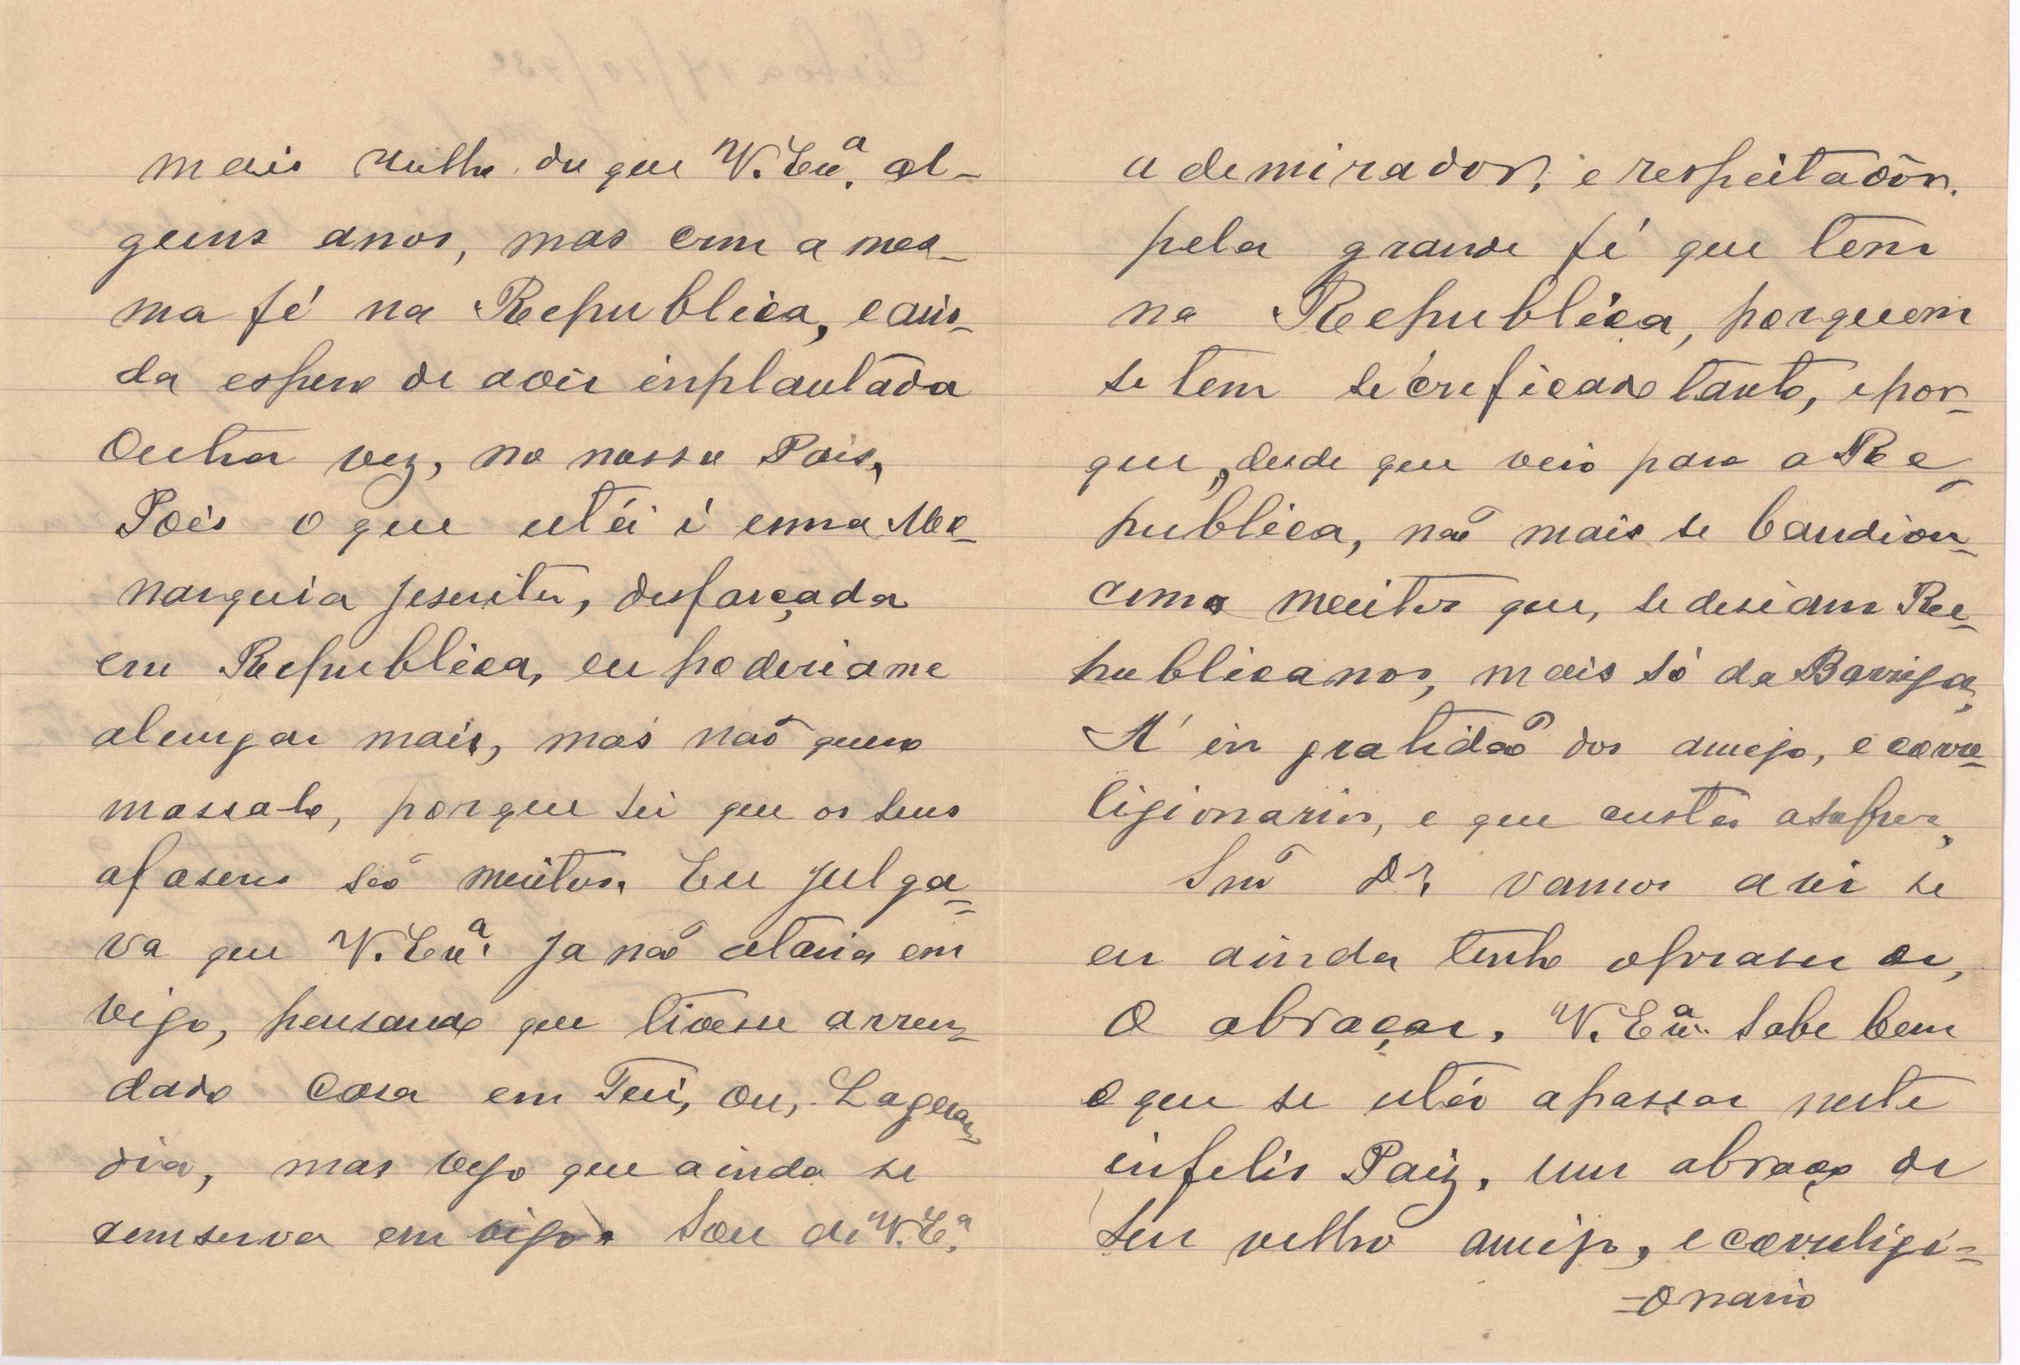 mais velho du que V. Exª. al-
guns anos, mas com a mes-
ma fé na Republica, e ain-
da espero de aver inplantada
Outra vez, no nosso Pais,
Pois o que está é uma Mo-
narquia Jesuita, desfarçada
em Republica, eu poderiame
alungar mais, mas não quero
massalo, porque sei que os seus
afaseres são muitos. Eu Julga-
va que V. Exª. Ja não estaria em
vigo, pensando que tivesse arren-
dado casa em Tui, ou, Laguar-
dia, mas vejo que ainda se
comserva em vigo. Sou de V. Eª.
ademirador, e respeitadôr.
pela grande fé que tem
na Republica, porquem
se tem sécreficado tanto, e por-
que, desde que veio para a Re-
publica, não mais se bandiou
como muitos que, se desiam Re-
publicanos, mais só da Barriga,
A' in gratidão dos amigo, e corre-
ligionarios, e que custa a sofrer,
Snr Dr. vamos a ver se
eu ainda tenho opraser de,
O abraçar. V. Exª. Sabe bem
o que se está a passar neste
infelis Paiz. um abraço de
Seu velho amigo, e correligi=
=onario